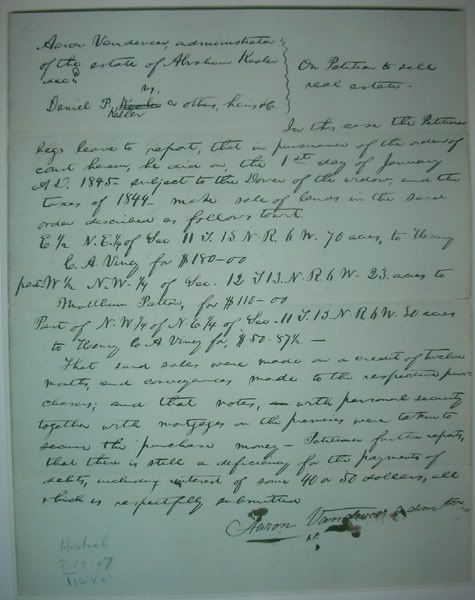 Aaron Vandeveer, administrator
of the estate of Abraham Keeler
decd
vs.
Daniel P. Keeler & others, heirs &c
Keller
On Petition to sell
real estate.
In this case the Petitioner
begs leave to report, that in pursuance of the order of
court herein, he did on, the 1st day of January
A.D. 1845 subject to the Dower of the widow, and the
taxes of 1844 make sale of lands in the said
order described as follows towit.
E ½ N.E. ¼ of Sec 11 T. 13 N. R. 6 W. 70 acres, to Henry
C. A. Viney for $180-00
part W ½ N.W. ¼ of Sec. 12 T 13. N. R 6 W. 23 acres to
Matthew Patton, for $110-00
Part of N. W ¼ of N. E ¼ of Sec. 11 T. 13. N. R 6 W. 30 acres
to Henry C. A Viney for $50-87½ —
That said sales were made on a credit of twelve
months, and conveyances made to the respective pur-
chasers; and that notes, with personal security
together with mortgages on the premises were taken to
secure the purchase money — Petitioner further reports,
that there is still a deficiency for the payments of
debts, including interest of some 40 or 50 dollars, all
which is respectfully submitted
Aaron Vandeveer